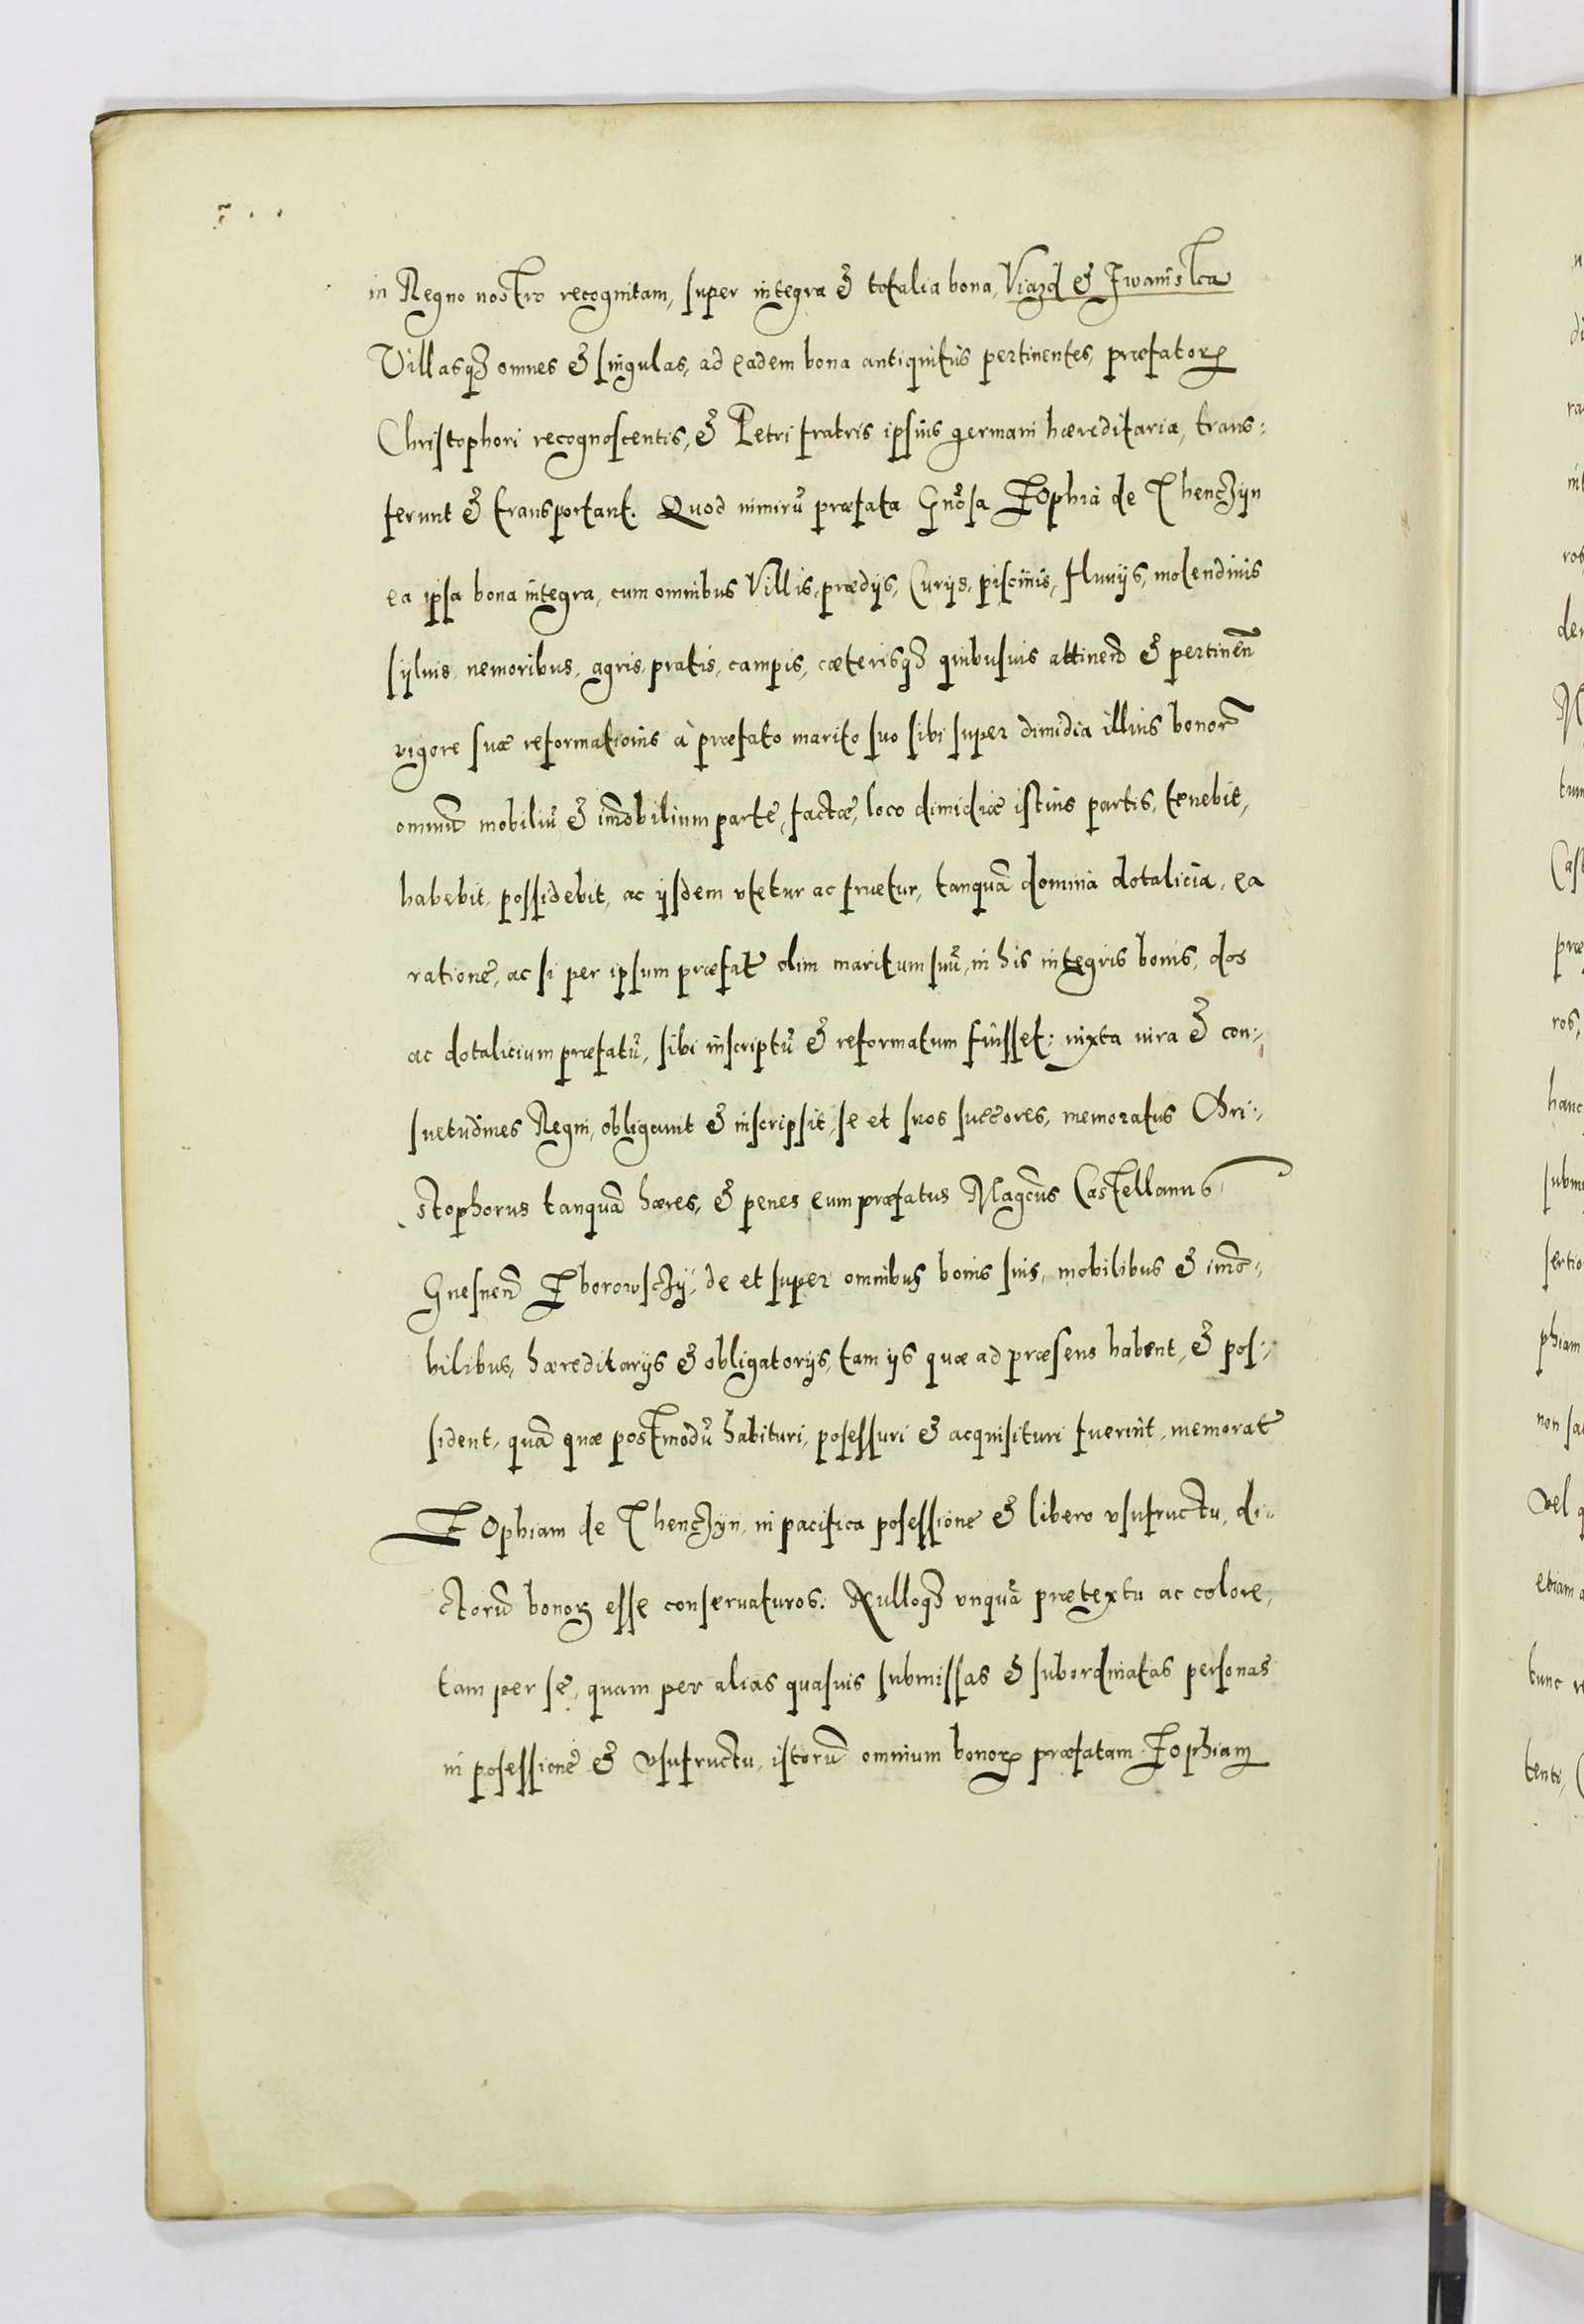 in Regno nostro recognitam, super integra & totalia bona, Viazd & Iwaniska
Villasq3 omnes & singulas, ad eadem bona antiquitùs pertinentes, præfatorꝝ
Christophori recognoscentis, & Petri fratris ipsius germani hæreditaria, trans:
ferunt & transportant. Quod nimirũ præfata Gnõsa ZOphia de Thenczÿn
ea ipsa bona integra, cum omnibus Villis, prædijs, Curijs, piscinis, fluuijs, molendinis
sÿluis, nemoribus, agris, pratis, campis, cæterisq3 quibusuis attinen̄ & pertinen̄
vigore suæ reformationis à præfato marito suo sibi super dimidia illius bonor̃
omniũ mobiliũ & im̃obilium parte, factæ, loco dimidiæ istius partis, tenebit,
habebit, possidebit, ac ijsdem vtetur ac fruetur, tanquã domina dotalicia, ea
ratione, ac si per ipsum præfat̃ olim maritum suũ, in his integris bonis, dos
ac dotalicium præfatũ, sibi inscriptũ & reformatum fuisset: iuxta iura & con:
suetudines Regni, obligauit & inscripsit, se et suos succ̃ores, memoratus Chri:
stophorus tanquã hæres, & penes eum præfatus Magc̃us Castellanus
Gnesnen̄ Zborowsczÿ, de et super omnibus bonis suis, mobilibus & im̃o:
bilibus, hæreditarijs & obligatorijs, tam ijs quæ ad præsens habent, & pos:
sident, quã quæ postmodũ habituri, posessuri & acquisituri fuerint, memorat̃
ZOphiam de Thenczÿn, in pacifica posessione & libero vsufructu, di:
ctorũ bonoꝝ esse conseruaturos. Nulloq3 vnquã prætextu ac colore,
tam per se, quam per alias quasuis submissas & subordinatas personas
in posessione & vsufructu, istorũ omnium bonorꝝ præfatam Zophiam